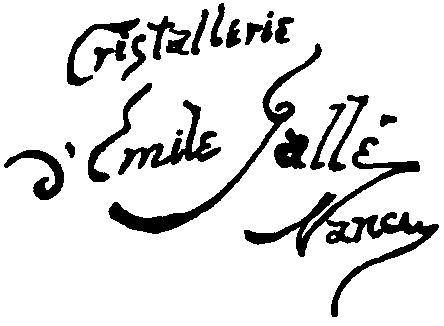 Cristallerie
d'Emile Gallé
Nancy